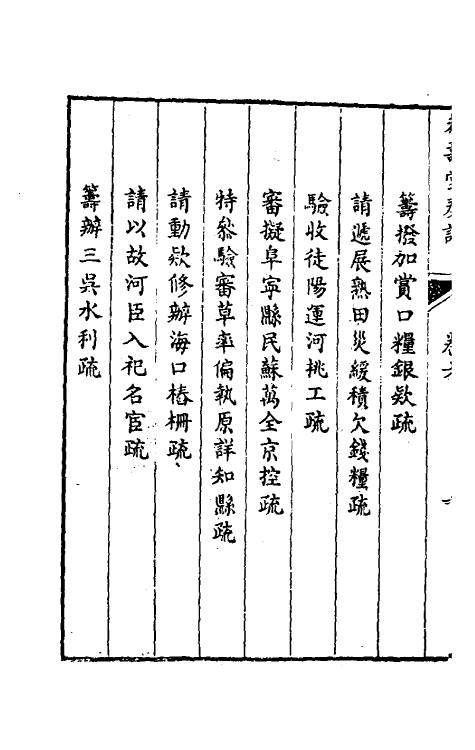 籌撥加賞口糧銀欵疏
請遞展熟田災緩積欠錢糧疏
驗收徒陽運河挑工疏
審擬阜寧縣民蘇萬全京控疏
特叅驗審草率偏執原詳知縣疏
請動欵修辦海口樁柵疏
請以故河臣入祀名宦疏
籌辦三吳水利疏